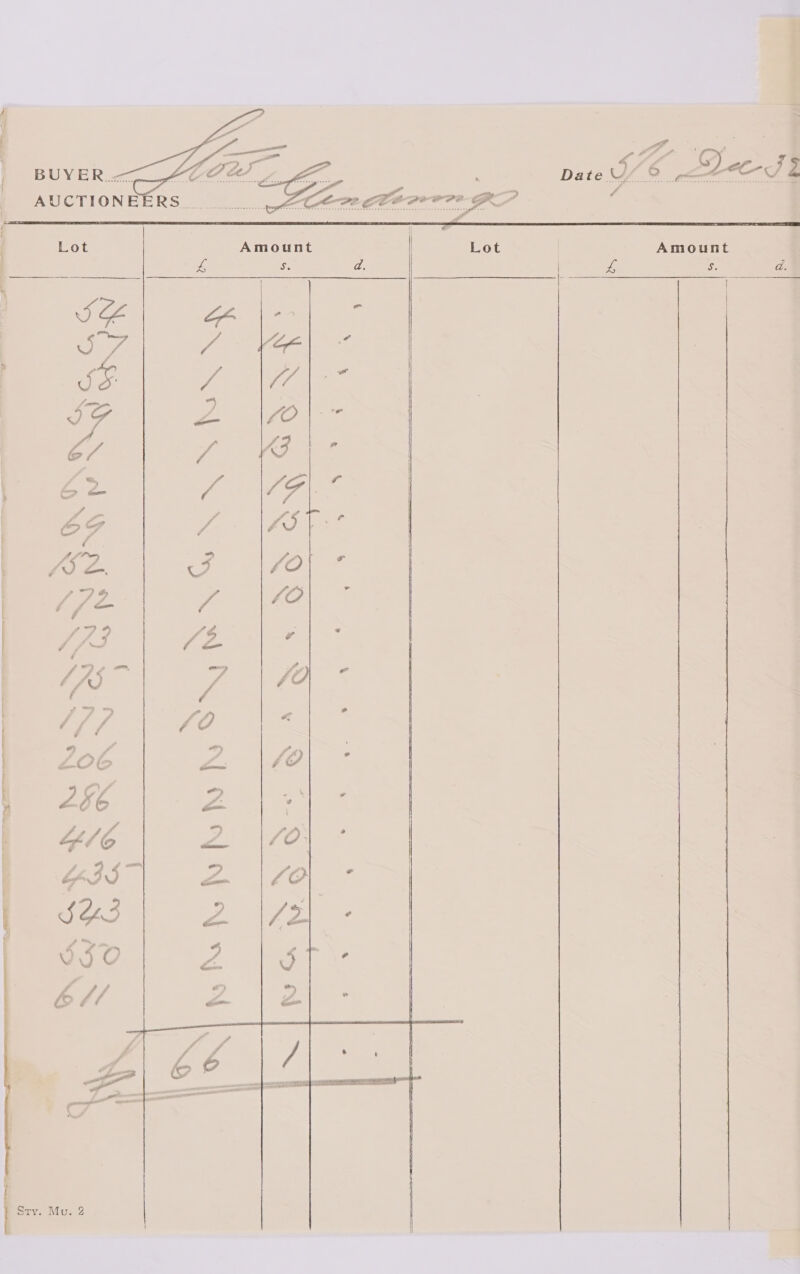 BUYER
AUCTIONEERS Glendening
Date 5/6 Dec 32
Lot Amount Lot Amount
£ s. d. £ s. d.
54 4 - -
57 1 14 -
58 1 11 -
59 2 10 -
61 1 13 -
62 1 19 -
69 1 15 -
152 3 10 -
172 1 10 -
173 12 - -
175 7 10 -
177 10 - -
206 2 10 -
286 2 - -
416 2 10 -
435 2 10 -
543 2 12 -
550 2 5 -
611 2 2 -
£ 66 1 - -
Sty. Mu. 2